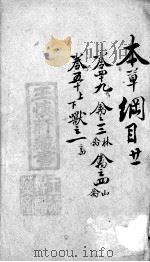 本草綱目廿
卷四十九 禽之三 林禽 禽之四 山禽
卷五十上下 獸之一 畜
www.mtoou.info